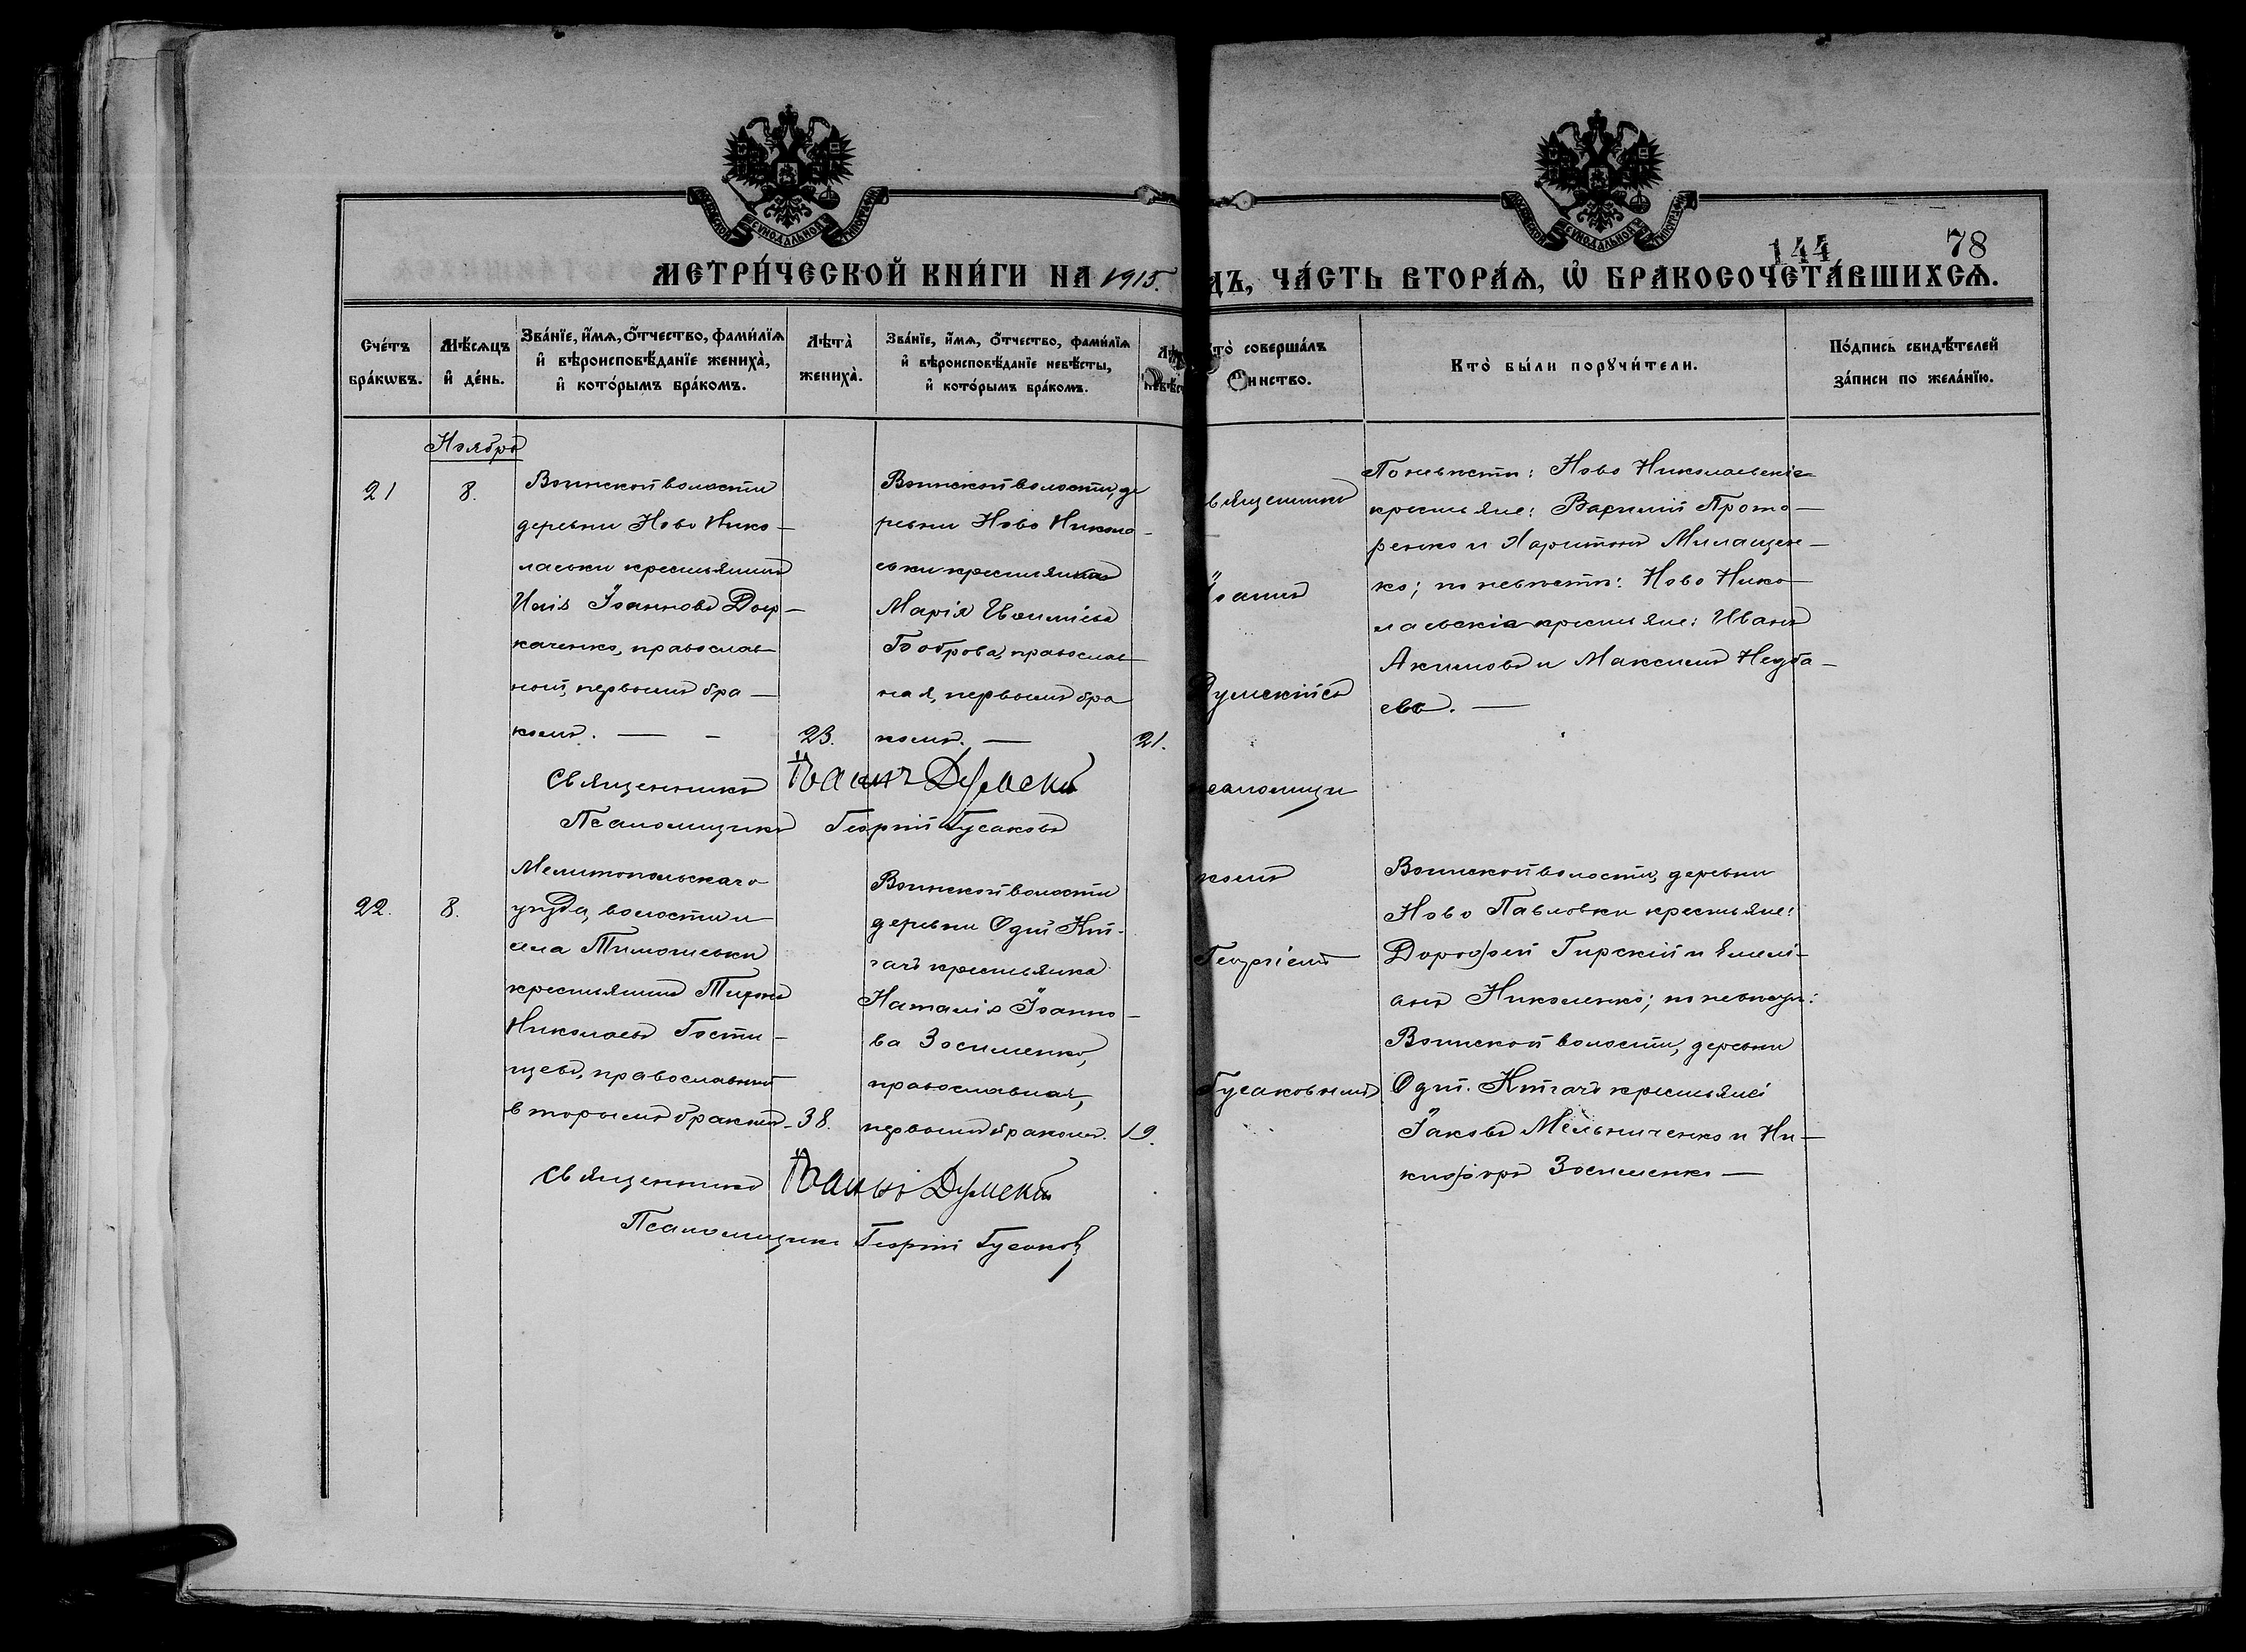 144 78
МЕТРИ́ЧЕСКОЙ КНИ́ГИ НА 1915.
ДЪ, ЧА́СТЬ ВТОРА́Ѧ, Ѽ БРАКОСОЧЕТА́ВШИХСѦ.
Сче́тъ бра́кѡвъ.
Мѣ́сѧцъ и҆ де́нь.
Зва́нїе, и҆́мѧ, ѻ҆́тчество, фами́лїѧ
и҆ вѣроисповѣ́данїе жениха̀,
и҆ кото́рымъ бра́комъ.
Лѣ́та̀ жениха̀.
Зва́нїе, и҆́мѧ, ѻ҆́тчество, фами́лїѧ
и҆ вѣроисповѣ́данїе невѣ́сты,
и҆ кото́рымъ бра́комъ.
то̀ соверша́лъ
инство.
Кто̀ бы́ли порꙋчи́тели.
По́дпись свидѣ́телей
за́писи по жела́нїю.
Ноябрь
21
8.
Воинской волости
деревни Ново Нико-
лаевки крестьянинъ
Илія Іоанновъ
каченко, православ
ный, первымъ бра-
комъ. —
23.
Воинской волости, де
ревни Ново Никола-
евки крестьянка
Марія
Боброва, православ
ная, первымъ бра
комъ. —
21.
вященникъ
Іоаннъ
Думскій съ
саломщи
По невѣсти: Ново Николаевскіе
крестьяне: Василій Прото-
ренко и Харитонъ Милащен-
ко; по невѣсти: Ново Нико
лаевскіе крестьяне: Иванъ
Акимовъ и Максимъ Недба-
евъ. —
Священникъ Іоаннъ Думскій
Псаломщикъ Георгій Гусаковъ
22.
8.
Мелитопольскаго
уѣзда, волости и
села Тимошевки
крестьянинъ
Николаевъ Гости-
щевъ, православный
вторымъ бракомъ-
38.
Воинской волости
деревни
крестьянка
Наталія Іоанно-
ва Зосименко,
православная,
первымъ бракомъ.
19.
комъ
Георгіемъ
Гусаковымъ
Воинской волости, деревни
Ново Павловки крестьяне:
Дорофей Гирскій и Емелі-
анъ Николенко; по невѣсти:
Воинской волости, деревни
крестьяне:
Іаковъ Мельниченко и Ни-
кифоръ Зосименко —
Священникъ Іоаннъ Думскій
Псаломщикъ Георгій Гусаковъ